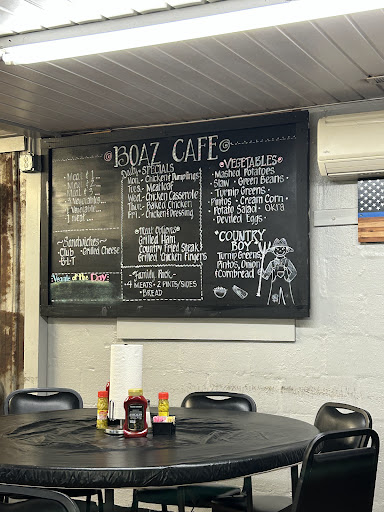 BOAZ CAFE
Meat & 1
Meat & 2
Meat & 3
Daily SPECIALS
Mon. - Chicken & Dumplings
Tues. - Meatloaf
Wed. - Chicken Casserole
Thur. - Baked Chicken
Fri. - Chicken & Dressing
Meat Options
Grilled Ham
Country Fried Steak
Grilled Chicken Fingers
Family Pack
4 MEATS • 2 PINTS/SIDES
• BREAD
Sandwiches
Club • Grilled Cheese
B•L•T
Veggie of the Day
VEGETABLES
Mashed Potatoes
Slaw • Green Beans
Turnip Greens
Pintos • Cream Corn
Potato Salad • Okra
Deviled Eggs
COUNTRY
BOY
Turnip Greens
Pintos, Onion
Cornbread